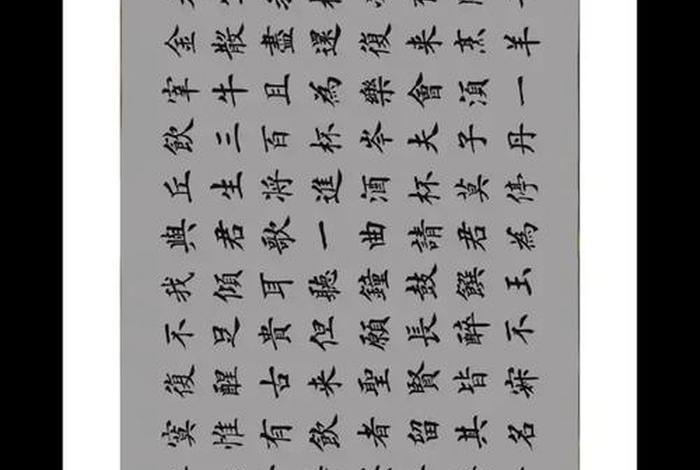 金散盡還復来烹羊
宰牛且為樂會湏一
飲三百杯岑夫子丹
丘生將進酒杯莫停
與君歌一曲請君為
我傾耳聽鐘鼓饌玉
不足貴但願長醉不
復醒古来聖賢皆寂
寞惟有飲者留其名